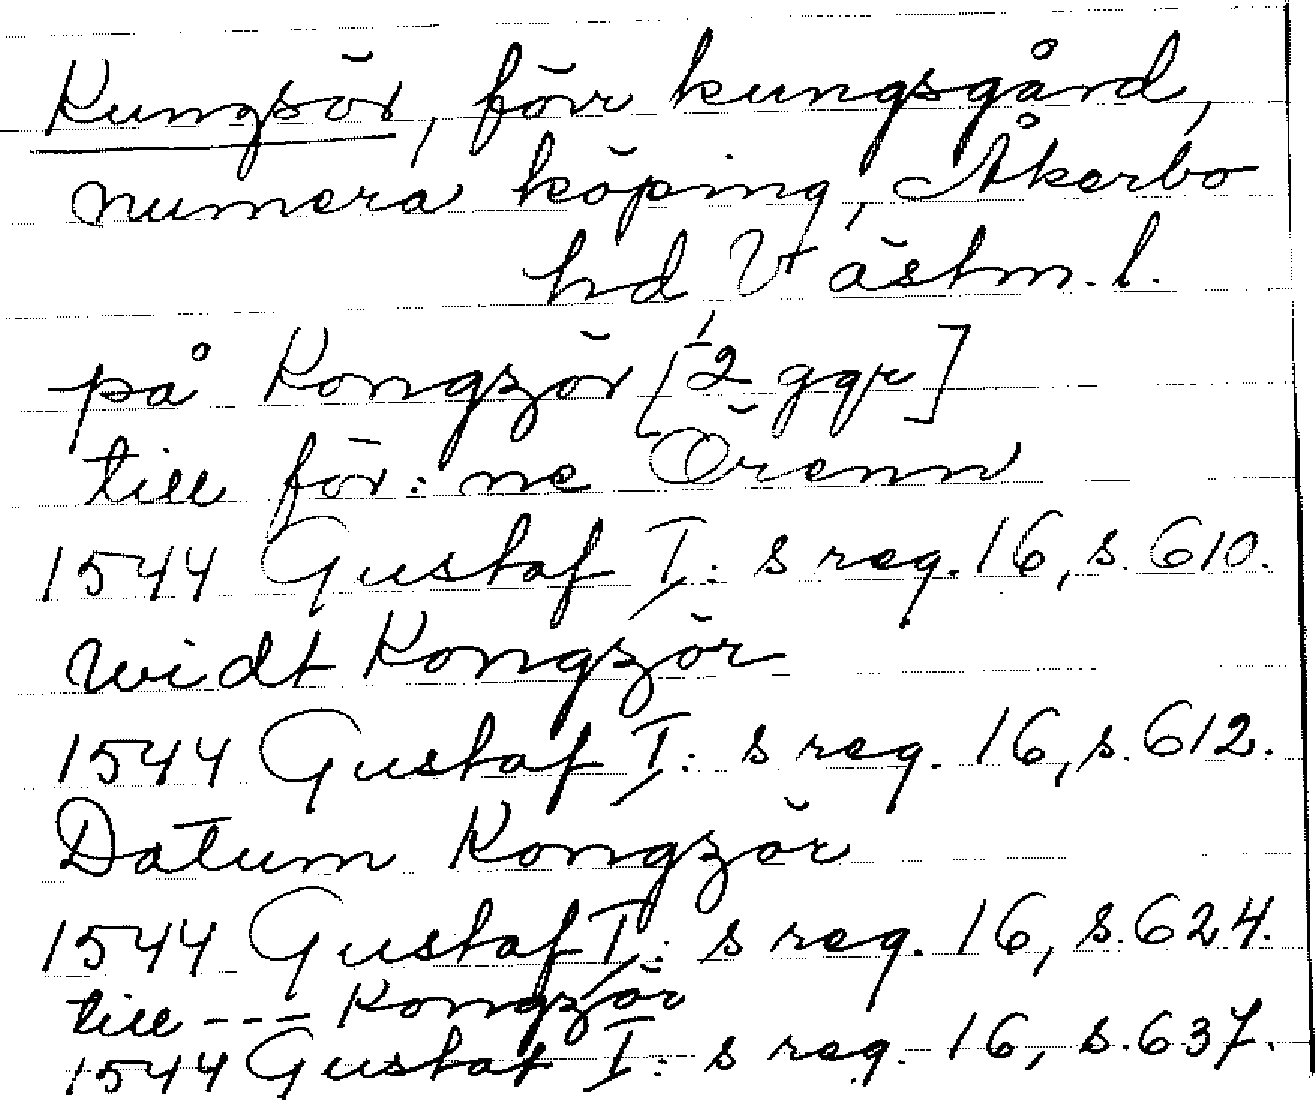 Kungsör, förr kungsgård,
numera köping, Åkerbo
hd Västm. l.
på Kongzör [2 ggr]
till för:ne Örenn
1544 Gustaf I:s reg. 16, s. 610.
widt Kongzör
1544 Gustaf I:s reg. 16, s. 612.
Datum Kongzör
1544 Gustaf I:s reg. 16, s. 624.
till --- Kongzör
1544 Gustaf I:s reg. 16, s. 637.